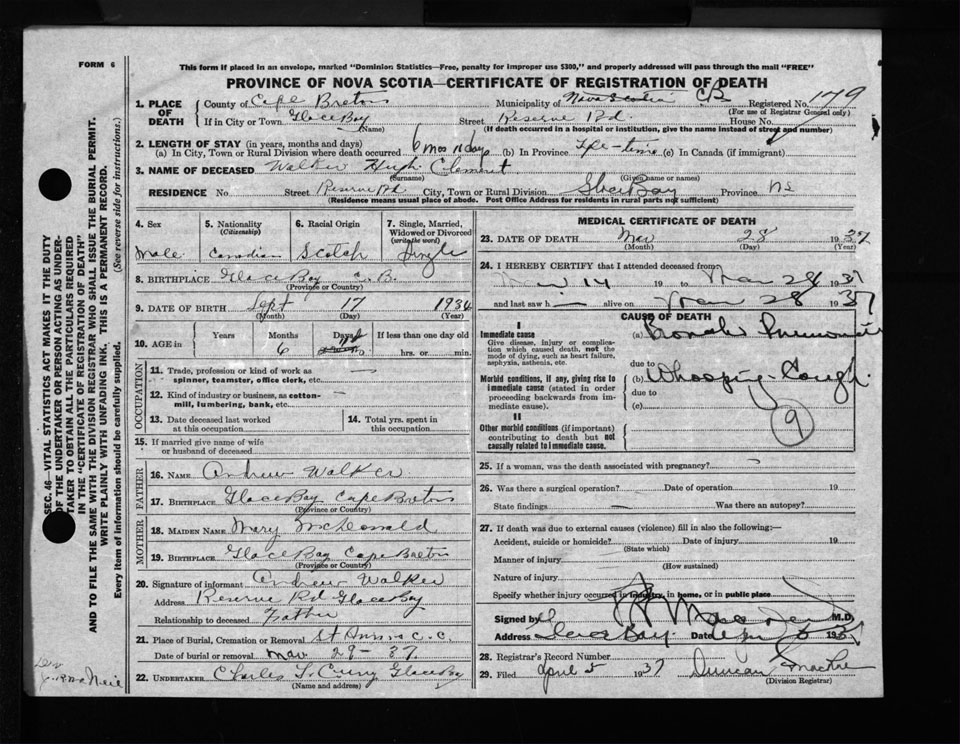 FORM 6
This form if placed in an envelope, marked "Dominion Statistics—Free, penalty for improper use $300," and properly addressed will pass through the mail "FREE"
PROVINCE OF NOVA SCOTIA—CERTIFICATE OF REGISTRATION OF DEATH
SEC. 46— VITAL STATISTICS ACT MAKES IT THE DUTY
OF THE UNDERTAKER OR PERSON ACTING AS UNDER-
TAKER TO OBTAIN ALL THE PARTICULARS REQUIRED
IN THE "CERTIFICATE OF REGISTRATION OF DEATH"
AND TO FILE THE SAME WITH THE DIVISION REGISTRAR WHO SHALL ISSUE THE BURIAL PERMIT.
WRITE PLAINLY WITH UNFADING INK. THIS IS A PERMANENT RECORD.
Every item of information should be carefully supplied. (See reverse side for instructions.)
1. PLACE OF DEATH County of Cape Breton Municipality of Nova Scotia C.B. Registered No. 179
(For use of Registrar General only)
If in City or Town Glace Bay Street Reserve Rd. House No.
(Name) (If death occurred in a hospital or institution, give the name instead of street and number)
2. LENGTH OF STAY (in years, months and days)
(a) In City, Town or Rural Division where death occurred 6 mos 11 days (b) In Province Life-time (c) In Canada (if immigrant)
3. NAME OF DECEASED Walker Hugh Clement
(Surname) (Given name or names)
RESIDENCE No. Street Reserve Rd City, Town or Rural Division Glace Bay Province NS
(Residence means usual place of abode. Post Office Address for residents in rural parts not sufficient)
4. Sex Male
5. Nationality (Citizenship) Canadian
6. Racial Origin Scotch
7. Single, Married, Widowed or Divorced (write the word) Single
8. BIRTHPLACE Glace Bay C.B.
(Province or Country)
9. DATE OF BIRTH Sept 17 1936
(Month) (Day) (Year)
10. AGE in Years Months 6 Days If less than one day old hrs. or min.
OCCUPATION
11. Trade, profession or kind of work as spinner, teamster, office clerk, etc. —
12. Kind of industry or business, as cotton-mill, lumbering, bank, etc. —
13. Date deceased last worked at this occupation
14. Total yrs. spent in this occupation
15. If married give name of wife or husband of deceased
FATHER
16. NAME Andrew Walker
17. BIRTHPLACE Glace Bay Cape Breton
(Province or Country)
MOTHER
18. MAIDEN NAME Mary McDonald
19. BIRTHPLACE Glace Bay Cape Breton
(Province or Country)
20. Signature of informant Andrew Walker
Address Reserve Rd Glace Bay
Relationship to deceased Father
21. Place of Burial, Cremation or Removal St Anns C.C.
Date of burial or removal Mar 29-37
22. UNDERTAKER Charles Curry Glace Bay
(Name and address)
MEDICAL CERTIFICATE OF DEATH
23. DATE OF DEATH Mar 28 1937
(Month) (Day) (Year)
24. I HEREBY CERTIFY that I attended deceased from
Mar 14 19 to Mar 28 1937
and last saw h— alive on Mar 28 1937
CAUSE OF DEATH
I
Immediate cause
Give disease, injury or complication which caused death, not the mode of dying, such as heart failure, asphyxia, asthenia, etc.
(a) Broncho Pneumonia
due to
Morbid conditions, if any, giving rise to immediate cause (stated in order proceeding backwards from immediate cause).
(b) Whooping Cough.
due to
(c)
9
II
Other morbid conditions (if important) contributing to death but not causally related to immediate cause.
25. If a woman, was the death associated with pregnancy? —
26. Was there a surgical operation? Date of operation 19
State findings — Was there an autopsy?
27. If death was due to external causes (violence) fill in also the following:—
Accident, suicide or homicide? Date of injury 19
(State which)
Manner of injury
(How sustained)
Nature of injury
Specify whether injury occurred in industry, in home, or in public place
Signed by M.D.
Address Glace Bay. Date 193
28. Registrar's Record Number
29. Filed April 5 1937 Duncan
(Division Registrar)